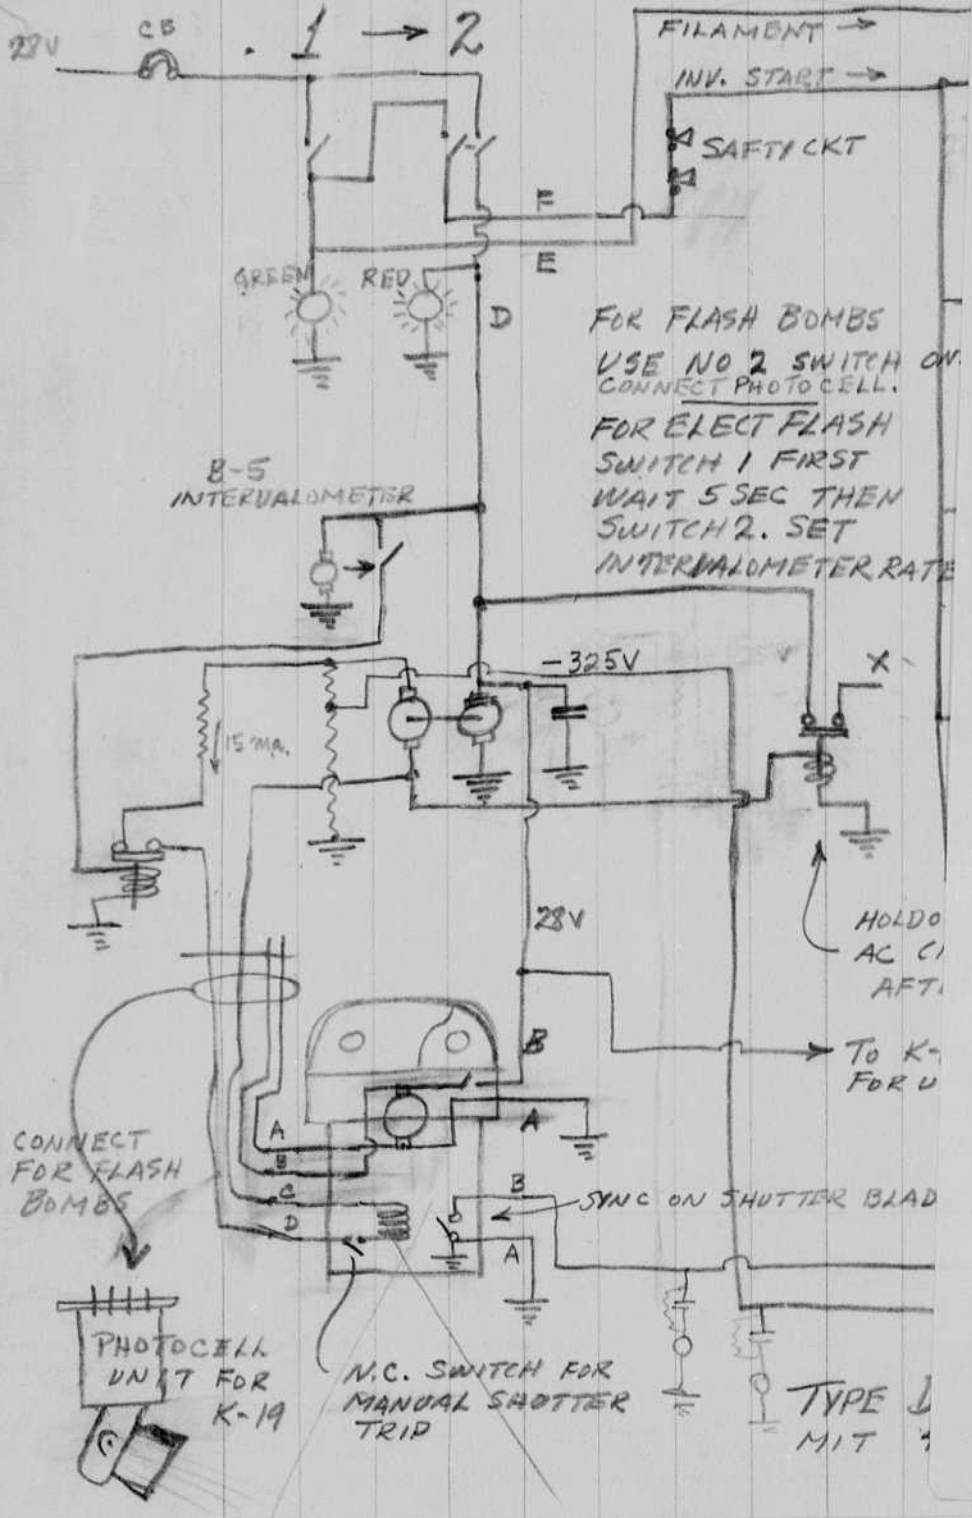 28V
CB
1 → 2
FILAMENT →
INV. START →
SAFTY CKT
F
E
GREEN
RED
D
FOR FLASH BOMBS
USE NO 2 SWITCH ON
CONNECT PHOTOCELL.
FOR ELECT FLASH
SWITCH 1 FIRST
WAIT 5 SEC THEN
SWITCH 2. SET
INTERVALOMETER RATE
B-5
INTERVALOMETER
-325V
X
15 ma.
28V
HOLDO
AC
AFT
B
TO K-
FOR U
A
A
CONNECT
FOR FLASH
BOMBS
B
C
D
B
SYNC ON SHUTTER BLAD
A
PHOTOCELL
UNIT FOR
K-19
N.C. SWITCH FOR
MANUAL SHUTTER
TRIP
TYPE
MIT